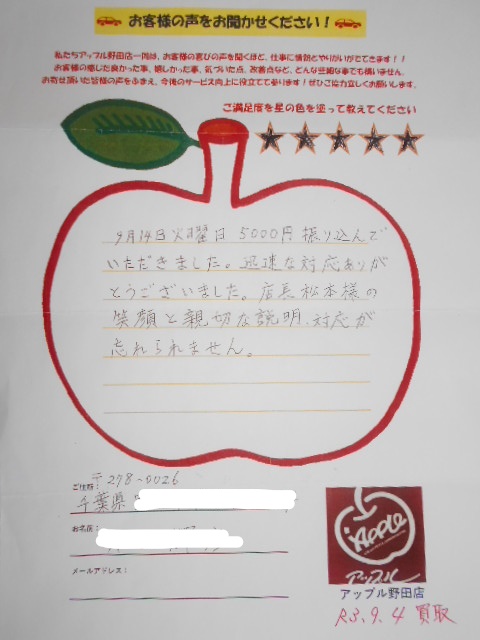 お客様の声をお聞かせください！
私たちアップル野田店一同は、お客様の喜びの声を聞くほど、仕事に情熱とやりがいがでてきます！！
お客様の感じた良かった事、嬉しかった事、気づいた点、改善点など、どんな些細な事でも構いません。
お寄せ頂いた皆様の声をふまえ、今後のサービス向上に役立てて参ります！ぜひご協力宜しくお願いします。
ご満足度を星の色を塗って教えてください
9月14日火曜日 5000円振り込んで
いただきました。迅速な対応ありが
とうございました。店長松本様の
笑顔と親切な説明、対応が
忘れられません。
〒278-0026
ご住所：
千葉県
お名前：
メールアドレス：
Apple
アップル
アップル野田店
R3.9.4 買取